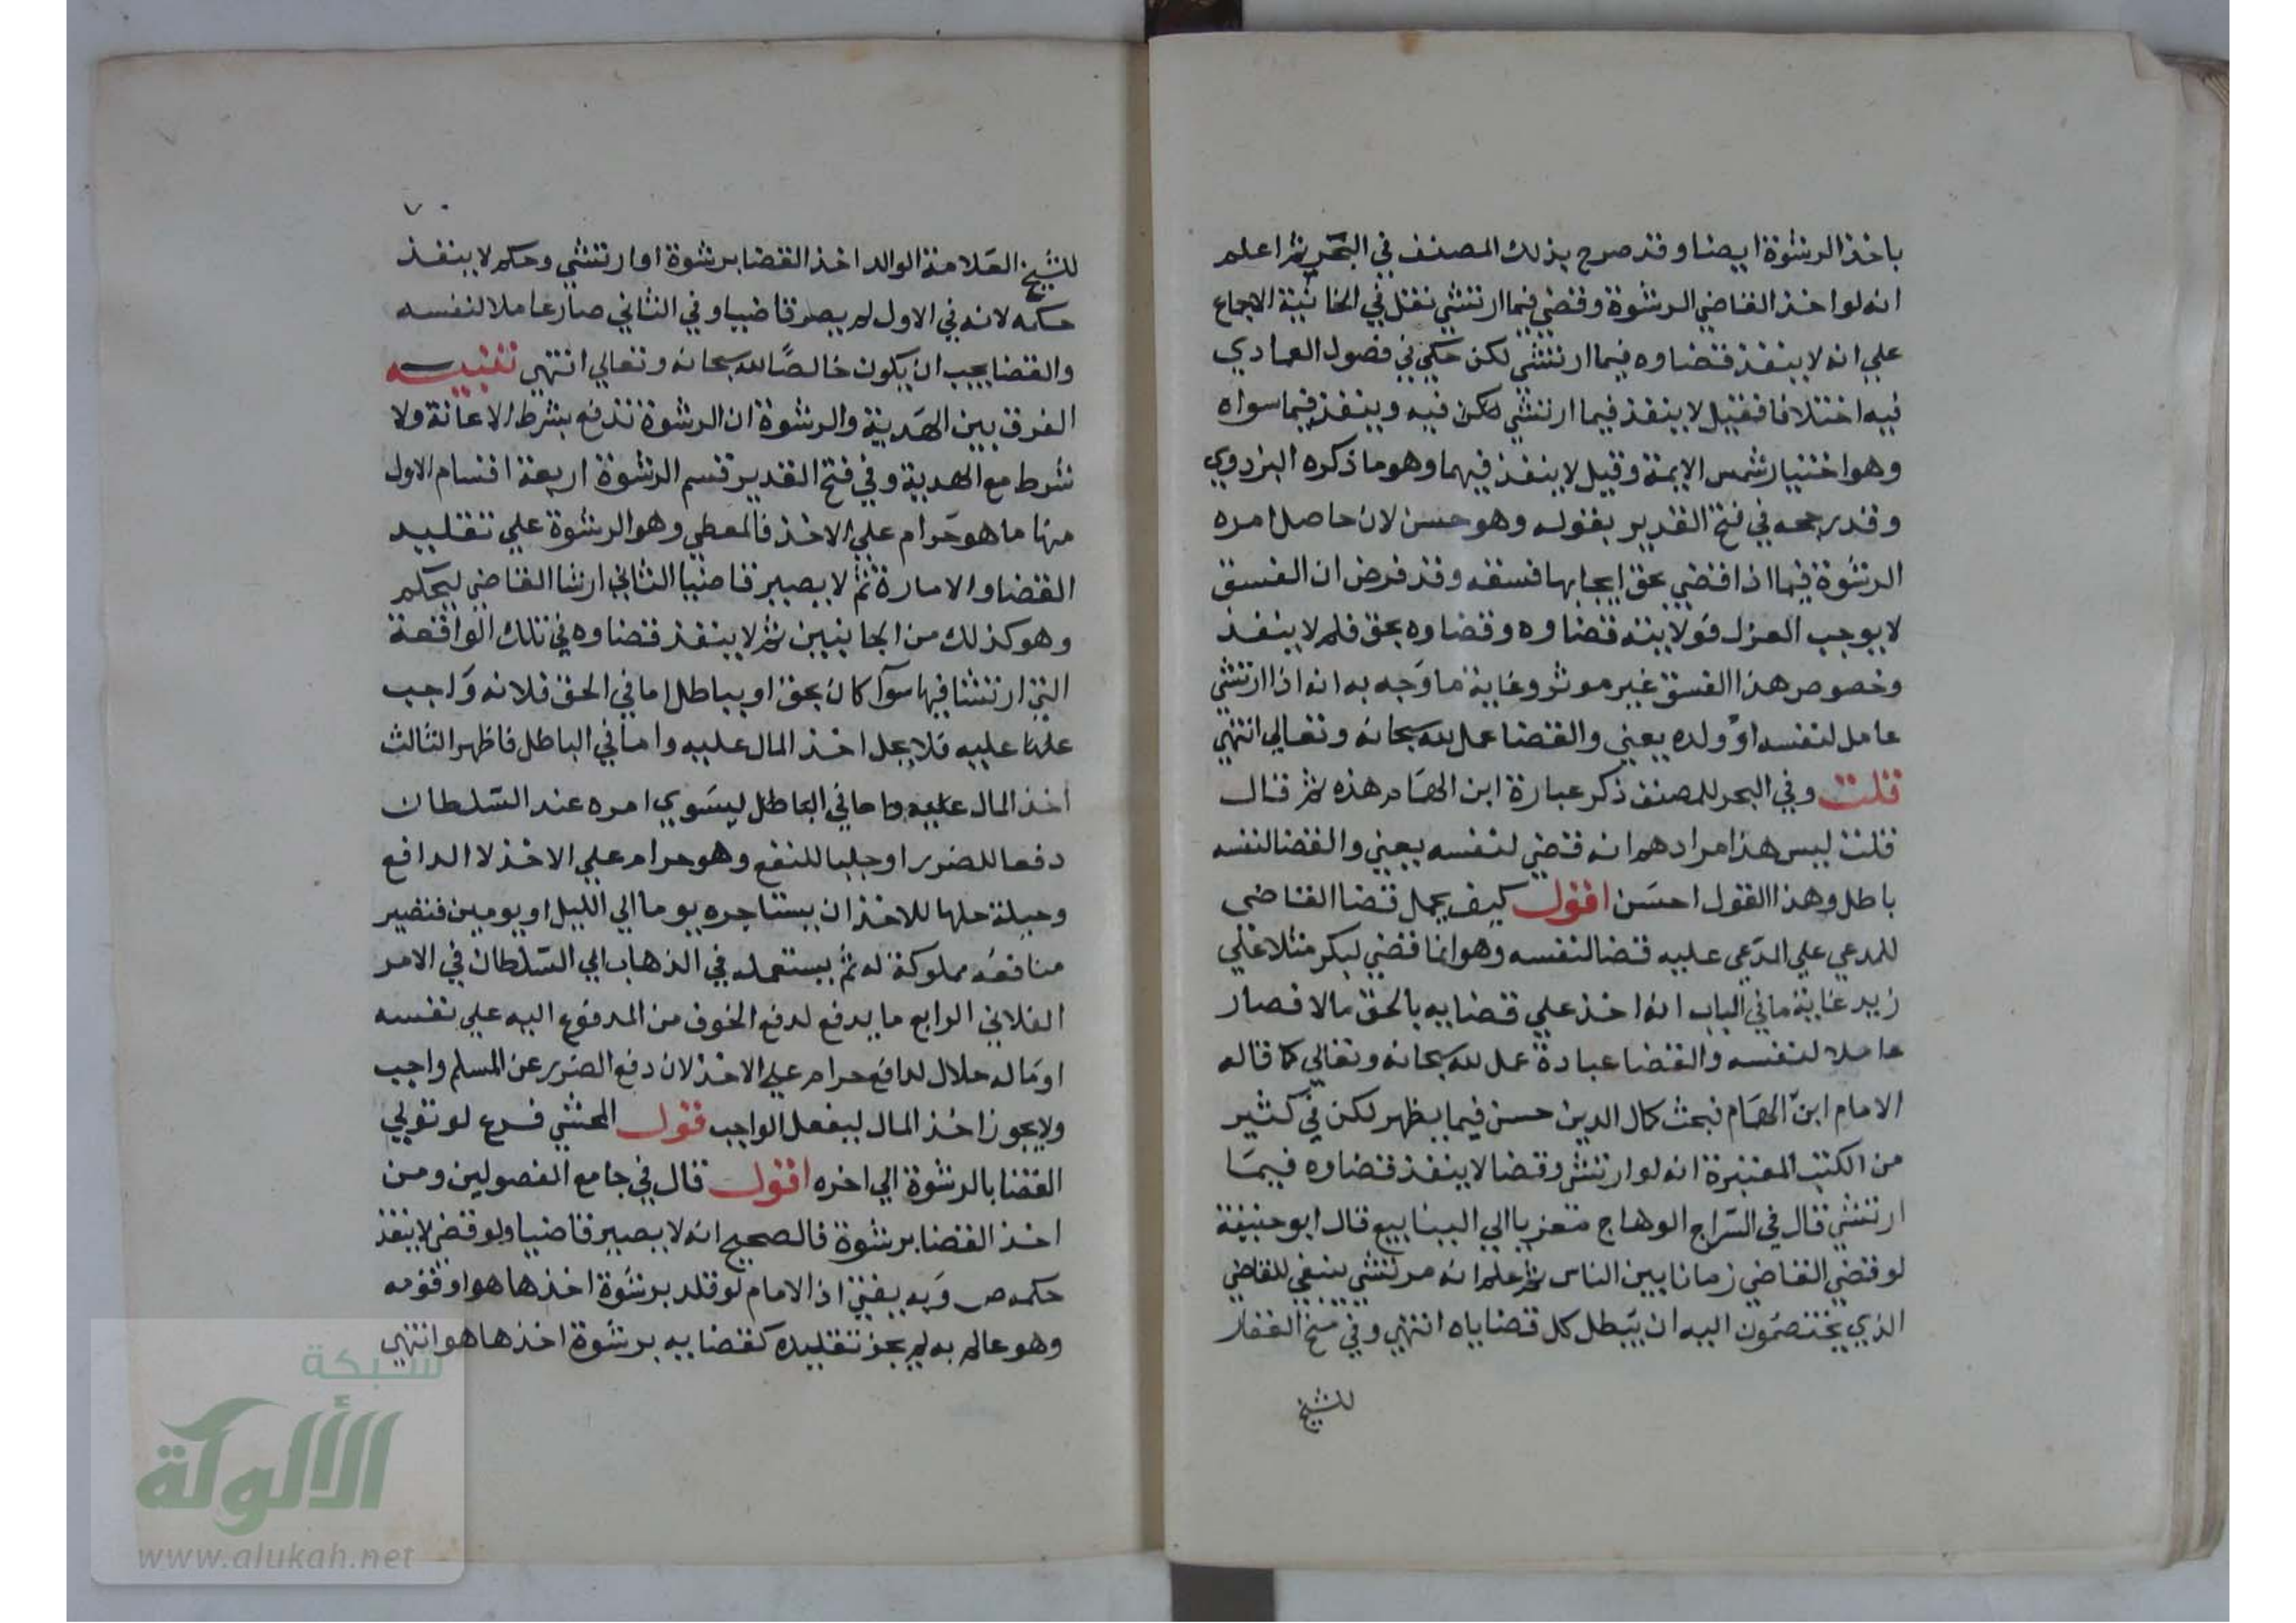 باخذ الرشوة ايضا وقد صرح بذلك المصنف في البحر ثم اعلم
انه لو اخذ القاضي الرشوة وقضي فيما ارتشي نقل في الخانية الاجماع
علي انه لا ينفذ قضاوه فيما ارتشي لكن حكي في فصول العمادي
فيه اختلافا فقيل لا ينفذ فيما ارتشي فيه وينفذ فيما سواه
وهو اختيار شمس الايمة وقيل لا ينفذ فيهما وهو ما ذكره البزدوي
وقد رجحه في فتح القدير بقوله وهو حسن لان حاصل امره
الرشوة فيما اذا قضي بحق ايجابها فسقه وقد فرض ان الفسق
لا يوجب العزل فولايته قضاوه وقضاوه بحق فلم لا ينفذ
وخصوص هذا الفسق غير موثر وغاية ما وجه به انه اذا ارتشي
عامل لنفسه او ولده يعني والقضا عمل لله سبحانه وتعالي انتهي
قلت وفي البحر للمصنف ذكر عبارة ابن الهمام هذه ثم قال
قلت ليس هذا مرادهم انه قضي لنفسه يعني والقضا لنفسه
باطل وهذا القول احسن اقول كيف يحمل قضا القاضي
للمدعي علي المدعي عليه قضا لنفسه وهو انما قضي لبكر مثلا علي
زيد غاية ما في الباب انه اخذ علي قضايه بالحق مالا فصار
عاملا لنفسه والقضا عبادة عمل لله سبحانه وتعالي كما قاله
الامام ابن الهمام فبحث كمال الدين حسن فيما يظهر لكن في كثير
من الكتب المعتبرة انه لو ارتشي وقضا لا ينفذ قضاوه فيما
ارتشي قال في السراج الوهاج متعزيا الي الينابيع قال ابو حنيفة
لو قضي القاضي زمانا بين الناس ثم علم انه مرتشي ينبغي للقاضي
الذي يختصمون اليه ان يبطل كل قضاياه انتهي وفي منح الغفار
للشيخ
٧٠
للشيخ العلامة الوالد اخذ القضا برشوة او ارتشي وحكم لا ينفذ
حكمه لانه في الاول لم يصر قاضيا وفي الثاني صار عاملا لنفسه
والقضا يجب ان يكون خالصًا لله سبحانه وتعالي انتهي تنبيه
الفرق بين الهدية والرشوة ان الرشوة تدفع بشرط الاعانة ولا
شرط مع الهدية وفي فتح القدير قسم الرشوة اربعة اقسام الاول
منها ما هو حرام علي الاخذ فالمعطي وهو الرشوة علي تقليد
القضا والامارة ثم لا يصير قاضيا الثاني ارشا القاضي ليحكم
وهو كذلك من الجانبين ثم لا ينفذ قضاوه في تلك الواقعة
التي ارتشا فيها سوآ كان بحق او بباطل اما في الحق فلانه واجب
عليه فلا يحل اخذ المال عليه واما في الباطل فاظهر الثالث
اخذ المال عليه واما في الباطل ليسوي امره عند السلطان
دفعا للضرر او جلبا للنفع وهو حرام علي الاخذ لا الدافع
وحيلة حلها للاخذ ان يستاجره يوما الي الليل او يومين فتصير
منافعه مملوكة له ثم يستعمله في الذهاب الي السلطان في الامر
الفلاني الرابع ما يدفع لدفع الخوف من المدفوع اليه علي نفسه
او ماله حلال لدافع حرام علي الاخذ لان دفع الضرر عن المسلم واجب
ولا يجوز اخذ المال ليفعل الواجب قول المحشي فرع لو تولي
القضا بالرشوة الي اخره اقول قال في جامع الفصولين ومن
اخذ القضا برشوة فالصحيح انه لا يصير قاضيا ولو قضي لا ينفذ
حكمه ص وبه يفتي اذ الامام لو قلد برشوة اخذها هو او قومه
وهو عالم به لم يجز تقليده كقضايه برشوة اخذها هو انتهي
شبكة
الألوكة
www.alukah.net